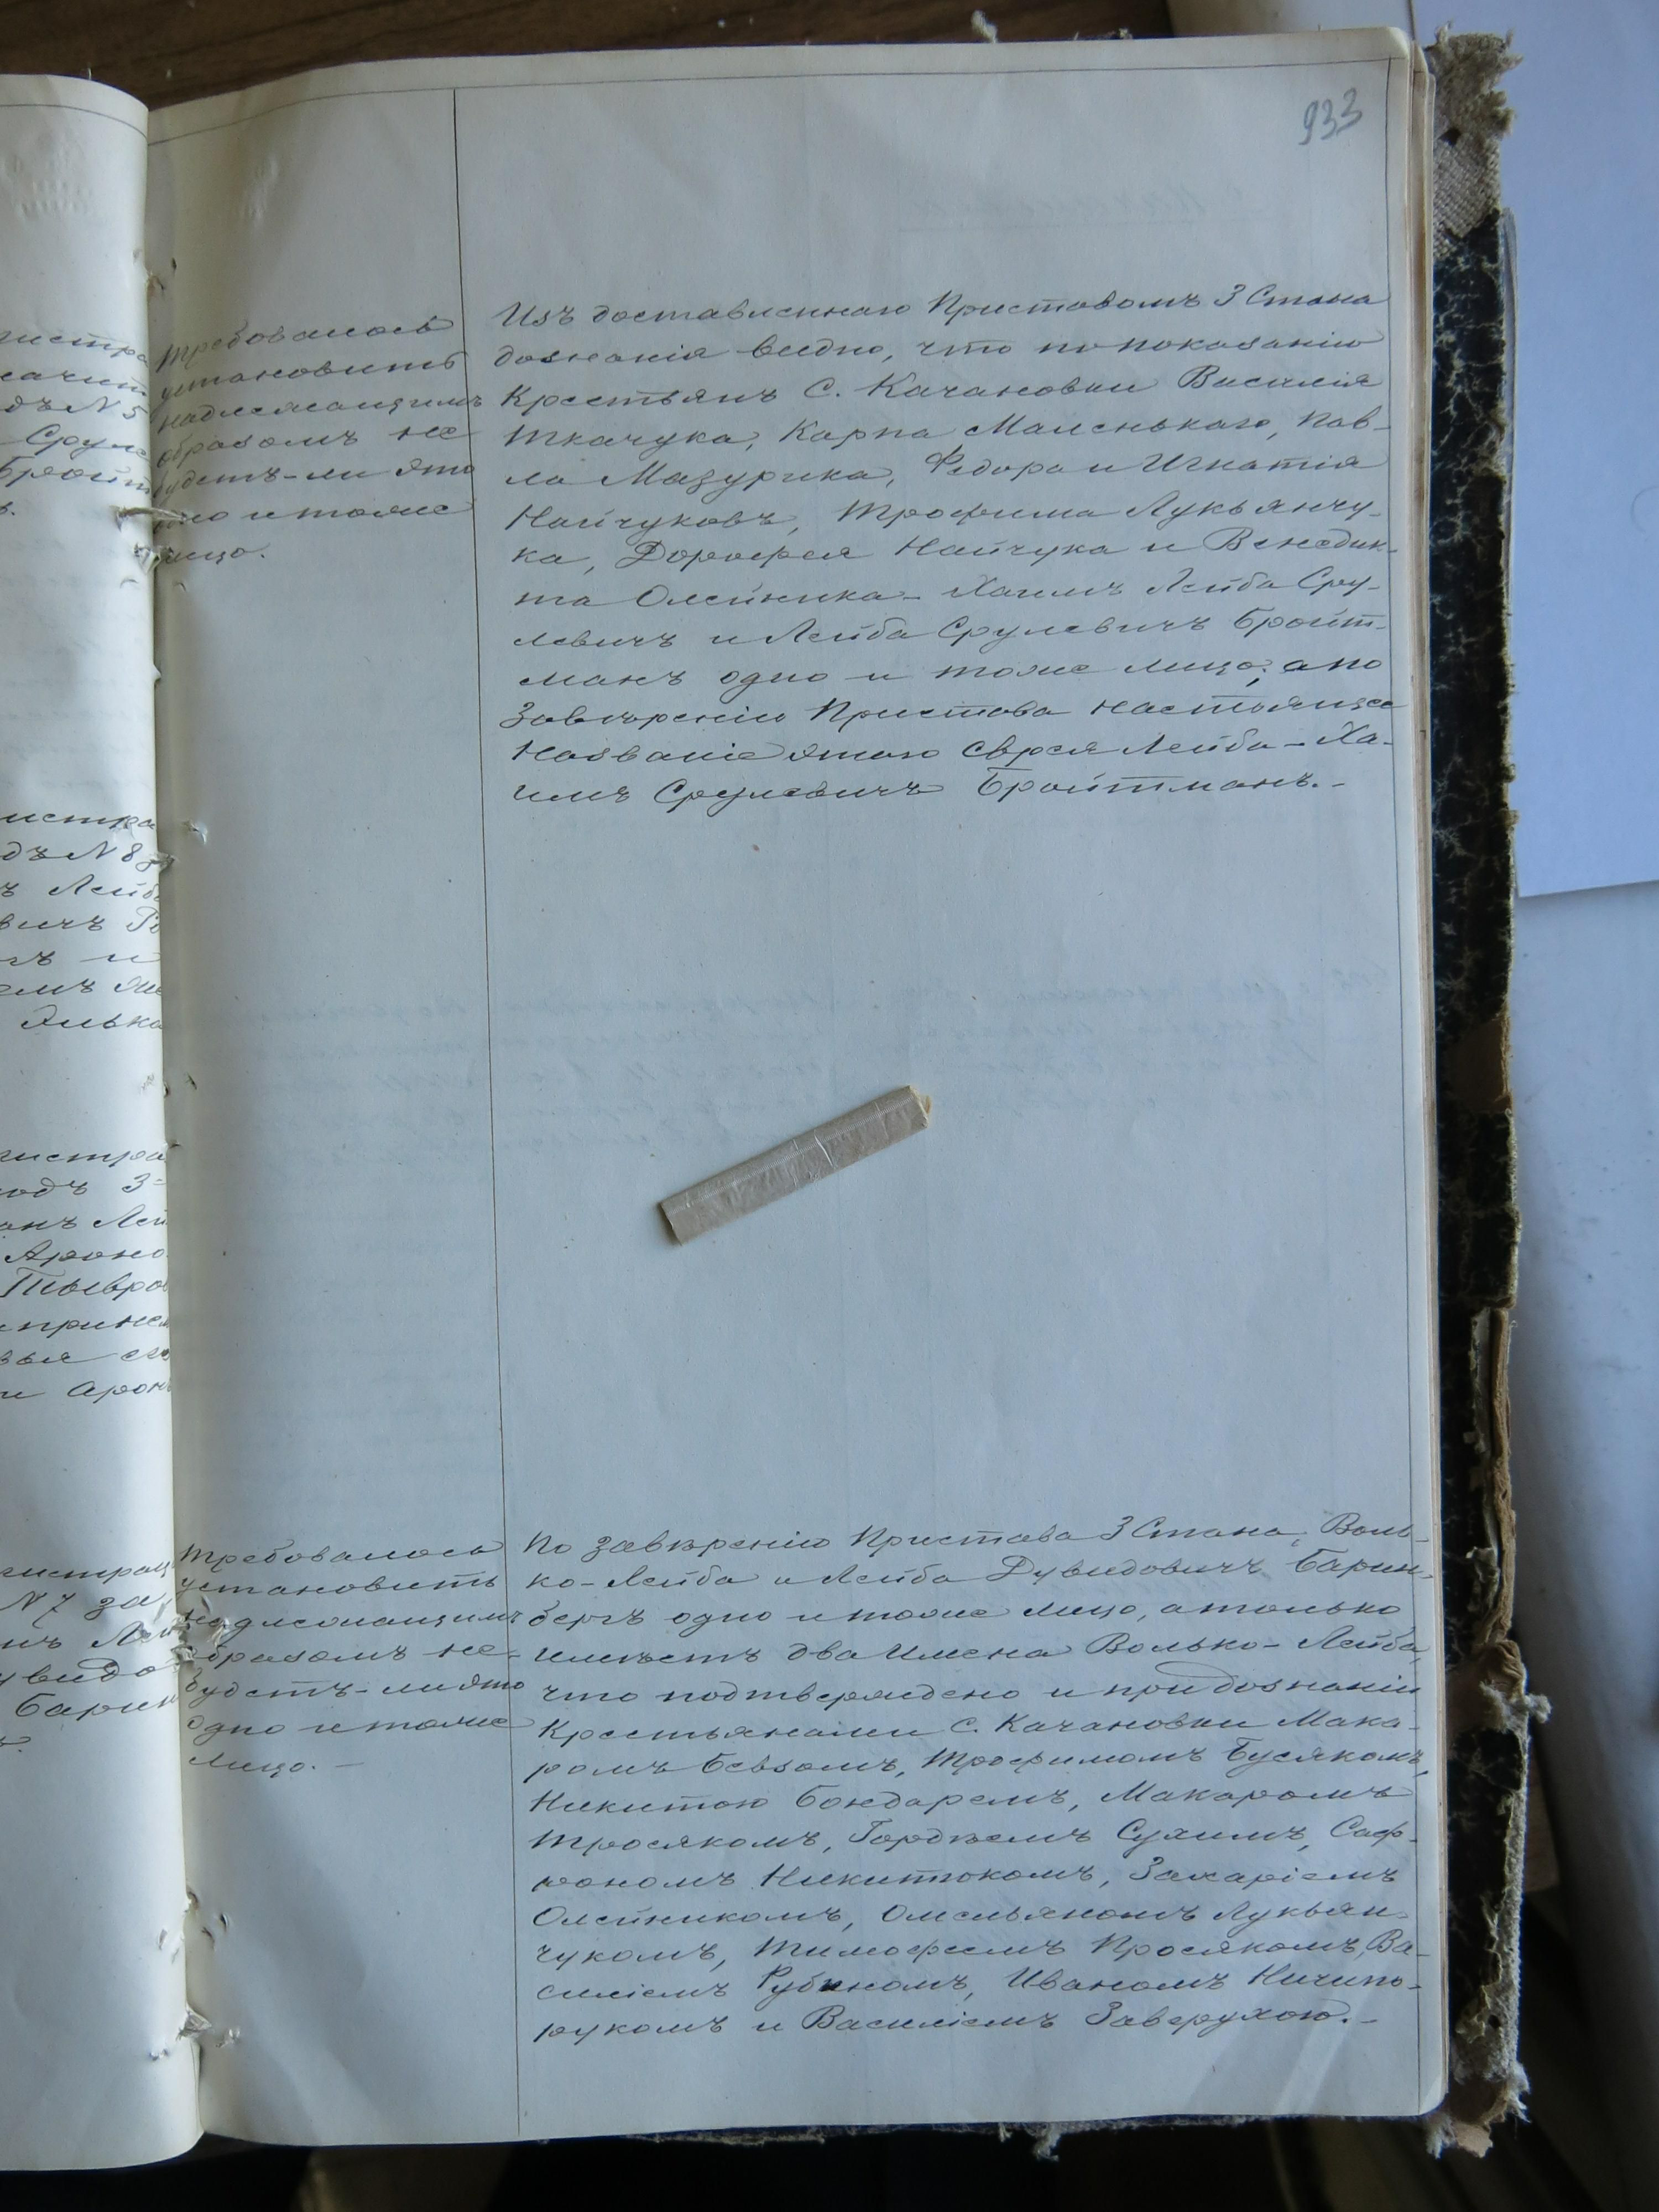 933
Требовалось
установить
надлежащимъ
образомъ не
будетъ-ли это
одно итоже
лицо.
Изъ доставленнаго Приставомъ 3 Стана
дознанія видно, что попоказанію
Крестьянъ С. Качановки Василія
Ткачука, Карпа Маленькаго, Пав-
ла Мазурика, Федора и Игнатія
Найчуковъ, Трофима Лукьянчу-
ка, Дорофея Найчука и Венедик-
та Олейника - Хаимъ Лейба Сру-
левичъ и Лейба Срулевичъ Бройт-
манъ одно и тоже лицо; а по
Завѣренію Пристава настоящее
Названіе этого Еврея Лейба-Ха-
имъ Срулевичъ Бройтманъ.-
Требовалось
установить
надлежащимъ
образомъ не-
будетъ-ли это
одно итоже
лицо.-
По завѣренію Пристава 3 Стана, Воль-
ко-Лейба и Лейба Дувидовичъ Барин-
бергъ одно итоже лицо, атолько
имѣетъ два Имена Волько-Лейба,
что подтверждено и придознаніи
Крестьянами С. Качановки Мака-
ромъ Бевзомъ, Трофимомъ Бусякомъ,
Никитою Бондаремъ, Макаромъ
Тросякомъ, Гордѣемъ Сухимъ, Саф-
рономъ Никитюкомъ, Захаріемъ
Олейникомъ, Омельяномъ Лукьян-
чукомъ, Тимофеемъ Просякомъ, Ва-
силіемъ Рубаномъ, Иваномъ Ничипо-
рукомъ и Василіемъ Заверухою.-